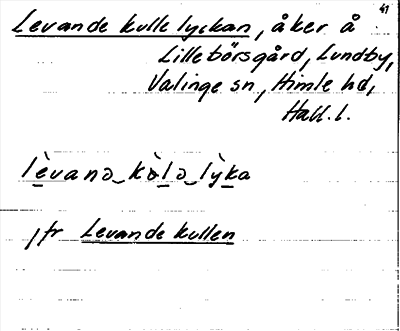 41
Levande kulle lyckan, åker å
Lillebörsgård, Lundby,
Valinge sn, Himle hd,
Hall. l.
lèvanə‿kòlə‿lỳka
jfr Levande kullen